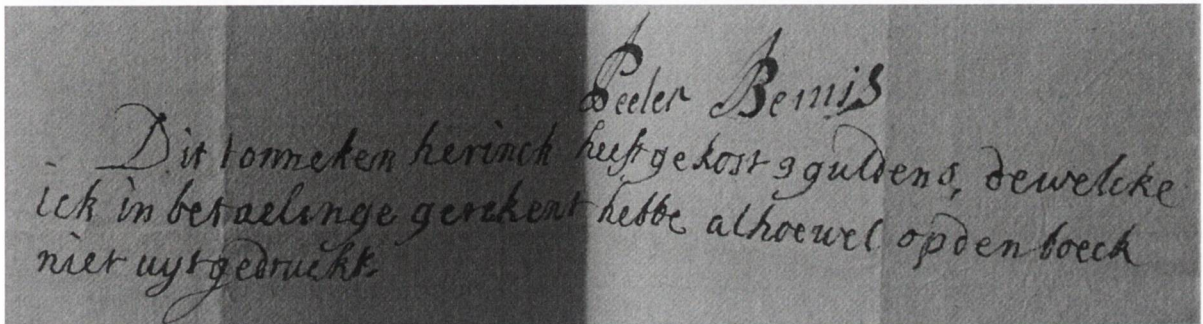 Peeter Bemis
Dit tonneken herinck heeft gekost 9 guldens, dewelcke
ick in betaelinge gerekent hebbe alhoewel op den boeck
niet uytgedruckt